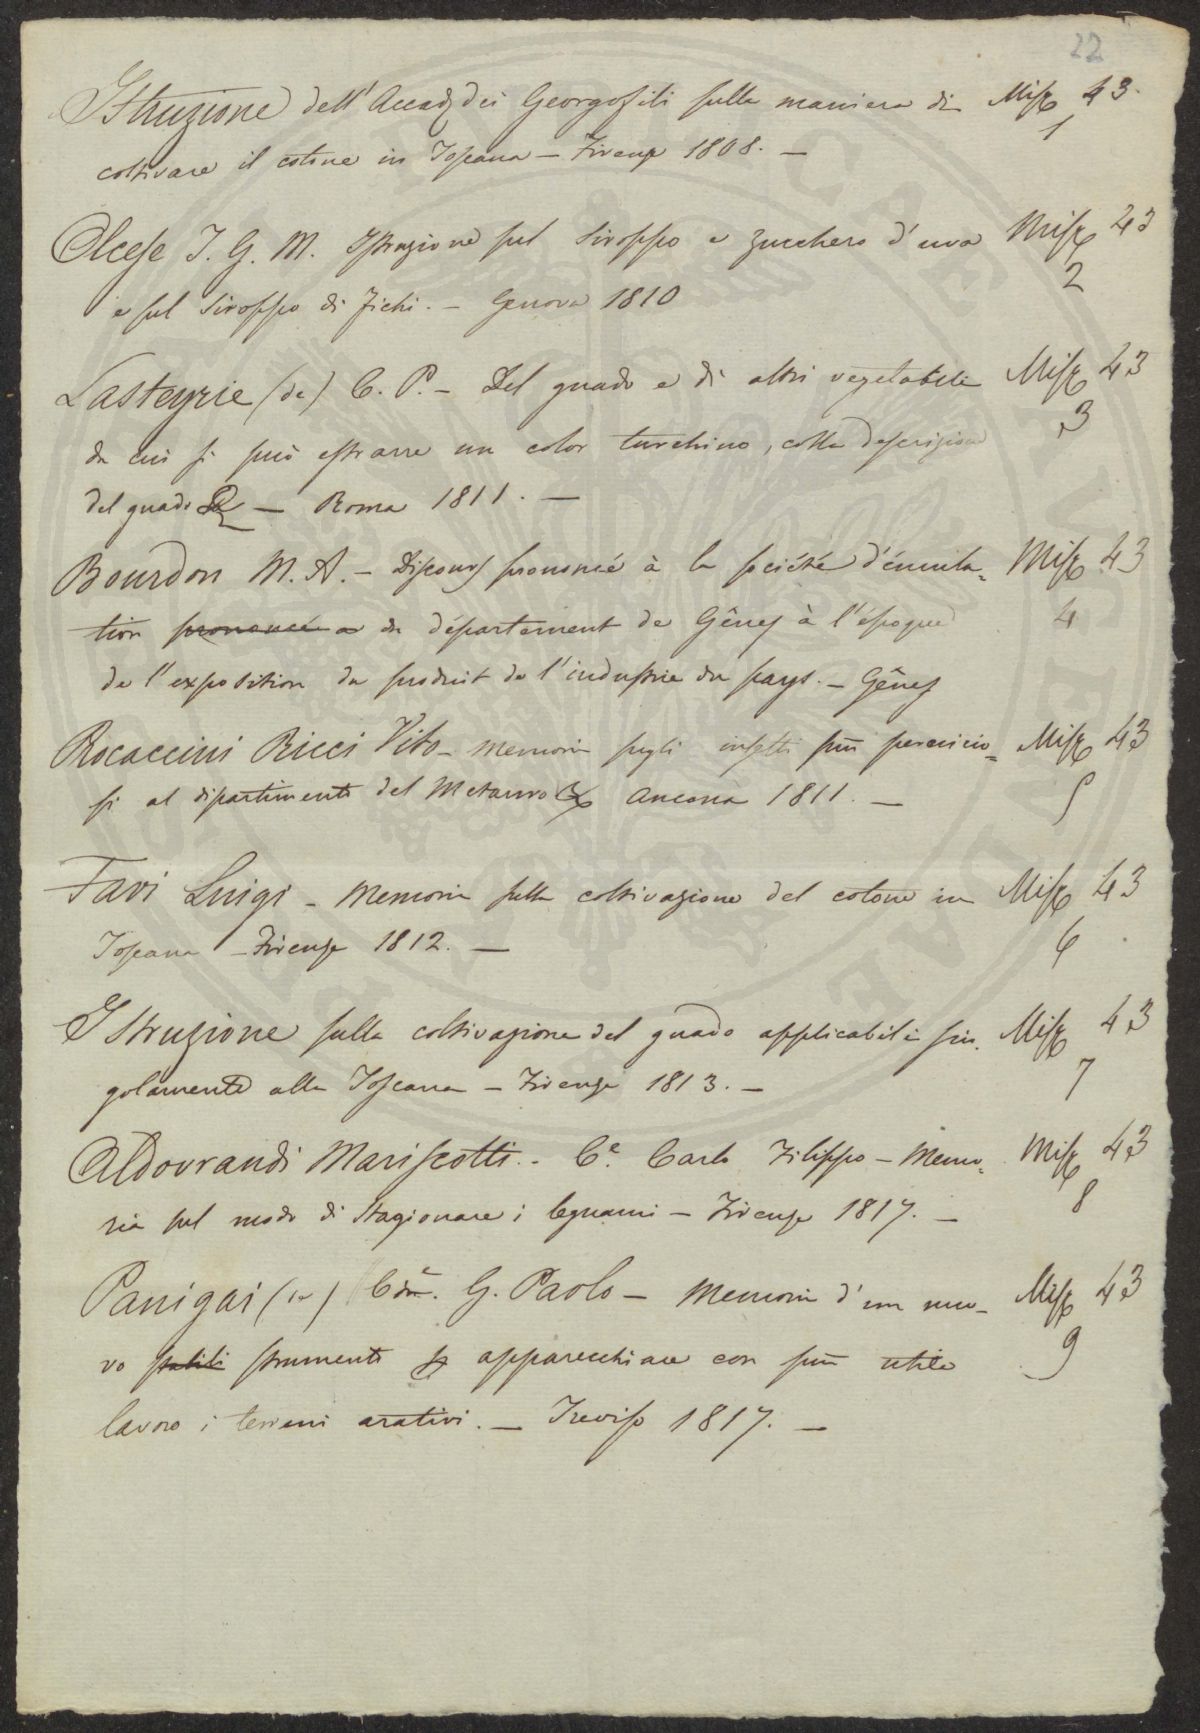 22
Istruzione dell'Accad. dei Georgofili sulla maniera di Misc. 43.
coltivare il cotone in Toscana – Firenze 1808. – 1
Olcese I. G. M. Istruzione sul siroppo e zucchero d'uva Misc. 43
e sul siroppo di fichi. – Genova 1810 2
Lasteyrie (de) C. P. – Del guado e di altri vegetabili Misc. 43
da cui si può estrarre un color turchino, colla descrizione 3
del guado – Roma 1811. –
Bourdon M. A. – Discours prononcé à la société d'émula= Misc. 43
tion prononcé a du département de Gênes à l'époque 4
de l'exposition du produit de l'industrie du pays. – Gênes
Rocaccini Ricci Vito – Memoria sugli insetti più pernicio= Misc. 43
si al dipartimento del Metauro Ancona 1811. – 5
Favi Luigi – Memoria sulla coltivazione del cotone in Misc. 43
Toscana – Firenze 1812. – 6
Istruzione sulla coltivazione del guado applicabile sin. Misc. 43
golarmente alla Toscana – Firenze 1813. – 7
Aldovrandi Mariscotti – Ce. Carlo Filippo – Memo= Misc. 43
ria sul modo di stagionare i legnami – Firenze 1817. – 8
Panigai (de) G. Paolo – Memoria d'un nuo– Misc. 43
vo strumento apparecchiare con più utile 9
lavoro i terreni arativi. – Treviso 1817. –